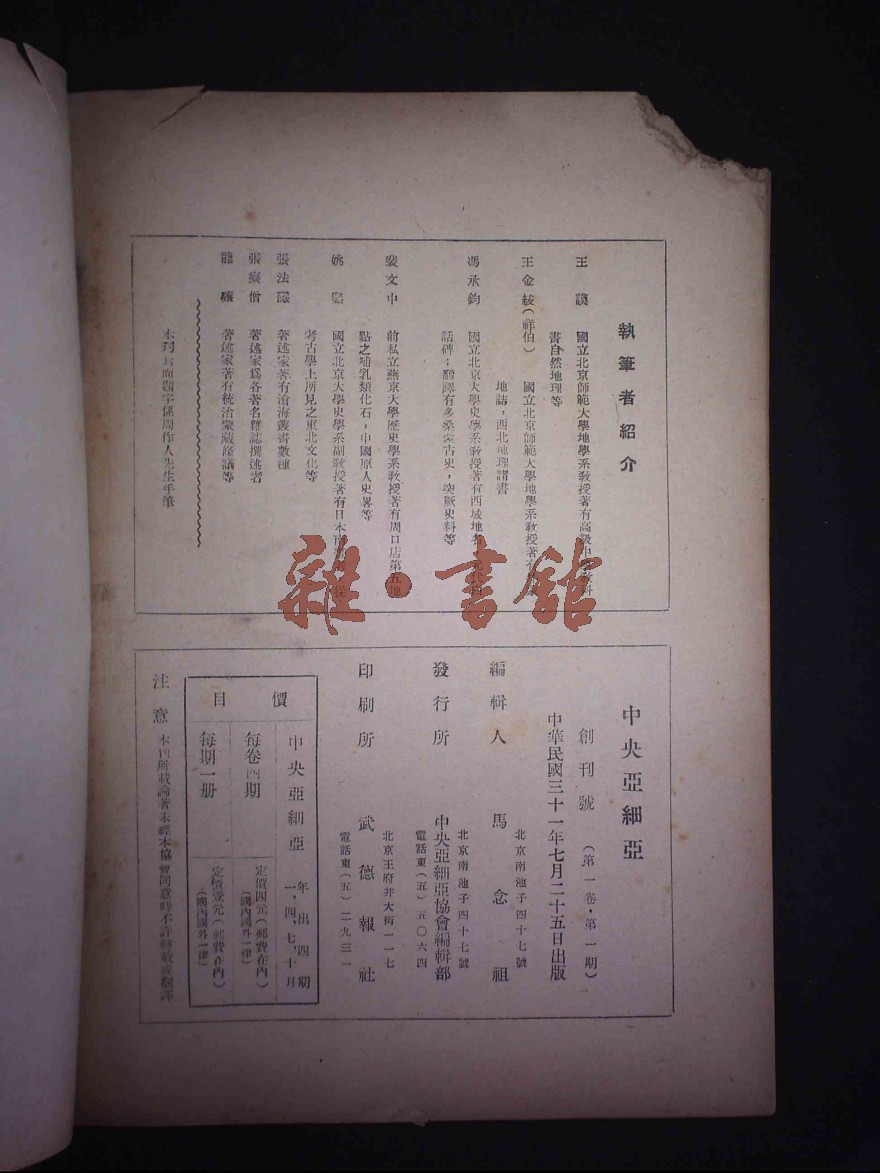 執筆者紹介
王謨 國立北京師範大學地學系教授著有高級中
書自然地理等
王金紱(祥伯) 國立北京師範大學地學系教授著
地誌，西北地理諸書
馮承鈞 國立北京大學史學系教授著有西域地名
話碑；翻譯有多桑蒙古史，突厥史料等
裴文中 前私立燕京大學歷史學系教授著有周口店第五地
點之哺乳類化石，中國原人史畧等
姚鋻 國立北京大學史學系副教授著有日本 從
考古學上所見之東北文化等
張法 著述家著有滄海叢書數種
張 僧 著述家爲各著名雜誌撰述者
龍 著述家著有統治蒙藏條議等
本刊封面題字係周作人先生手筆
雜·書館
中央亞細亞
創刊號 (第一卷·第一期)
中華民國三十一年七月二十五日出版
北京南池子四十七號
編輯人 馬念祖
北京南池子四十七號
發行所 中央亞細亞協會編輯部
電話東(五)五〇六四
北京王府井大街一一七
印刷所 武德報社
電話東(五)二九三一
價目
中央亞細亞 年出四期
一、四、七、十月
每卷四期 定價四元(郵費在內)
(國內國外一律)
每期一册 定價壹元(郵費在內)
(國內國外一律)
注意 本刊所載論著未經本協會同意時不許轉載或翻譯